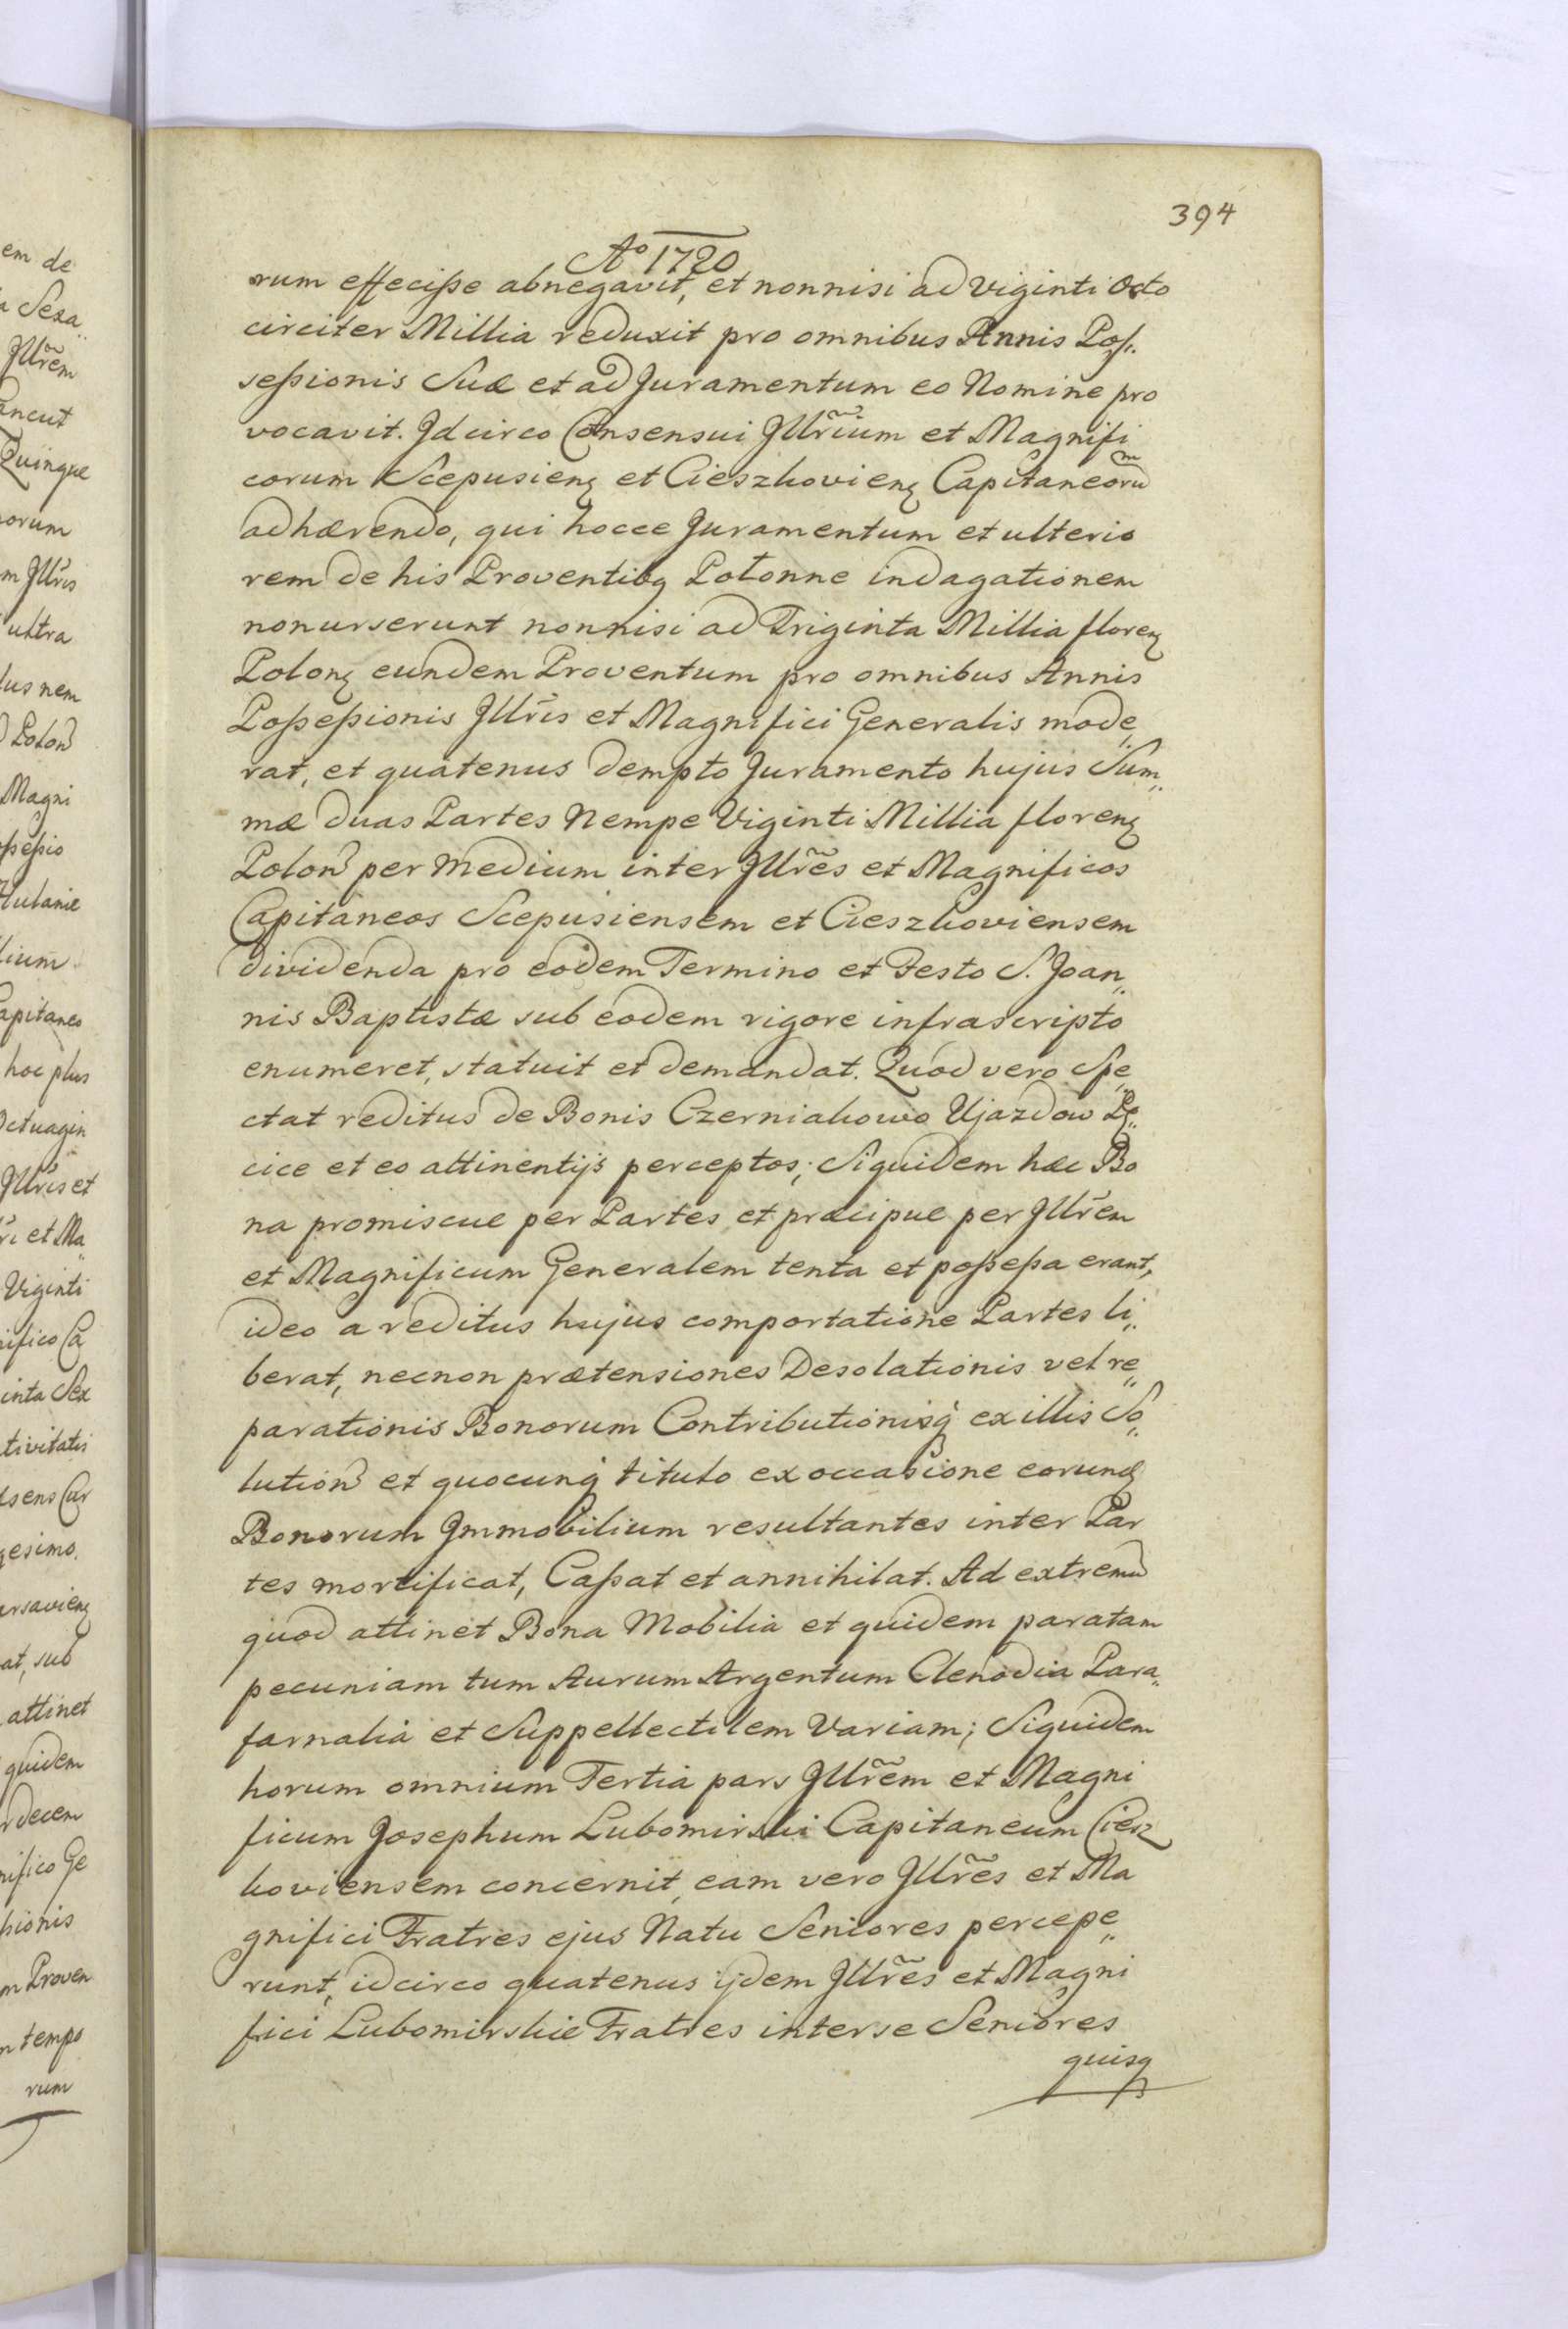 394
Aº 1720
rum effeciße abnegavit, et nonnisi ad Viginti Octo
circiter Millia reduxit pro omnibus Annis Poſ„
seßionis Suæ et ad Juramentum eo Nomine pro
vocavit. Idcirco Consensui Illr̃ium et Magnifi
corum Scepusienꝫ et Cieszkovienꝫ Capitaneorũ
adhærendo, qui hocce Juramentum et ulterio
rem de his Proventibꝫ Potonne indagationem
nonurserunt nonnisi ad Triginta Millia florenꝫ
Polonꝫ eundem Proventum pro omnibus Annis
Poßeßionis Illr̃is et Magnifici Generalis mode„
rat, et quatenus dempto Juramento hujus Sum„
mæ duas Partes Nempe Viginti Millia florenꝫ
Polon̄ per Medium inter Illr̃es et Magnificos
Capitaneos Scepusiensem et Cieszkoviensem
dividenda pro eodem Termino et Festo S. Joan„
nis Baptistæ sub eodem rigore infrascripto
enumeret, statuit et demandat. Quod vero Spe„
ctat reditus de Bonis Czerniakowo Ujazdow Pę„
cice et eo attinentijs perceptos; Siquidem hæc Bo
na promiscue per Partes et præcipue per Illr̃em
et Magnificum Generalem tenta et poßeßa erant,
ideo a reditus hujus comportatione Partes li„
berat, necnon prætensiones Desolationis vel re„
parationis Bonorum Contributionisq́ ex illis So„
lution̄ et quocunq́ titulo ex occasione eorundꝫ
Bonorum Immobilium resultantes inter Par
tes mortificat, Caßat et annihilat. Ad extremũ
quod attinet Bona Mobilia et quidem paratam
pecuniam tum Aurum Argentum Clenodia Para„
farnalia et Suppellectilem Variam; Siquidem
horum omnium Tertia pars Illr̃em et Magni
ficum Josephum Lubomirski Capitaneum Ciesz
koviensem concernit, eam vero Illr̃es et Ma
gnifici Fratres ejus Natu Seniores percepe„
runt, idcirco quatenus ijdem Illr̃es et Magni
fici Lubomirskie Fratres interse Seniores
quisq